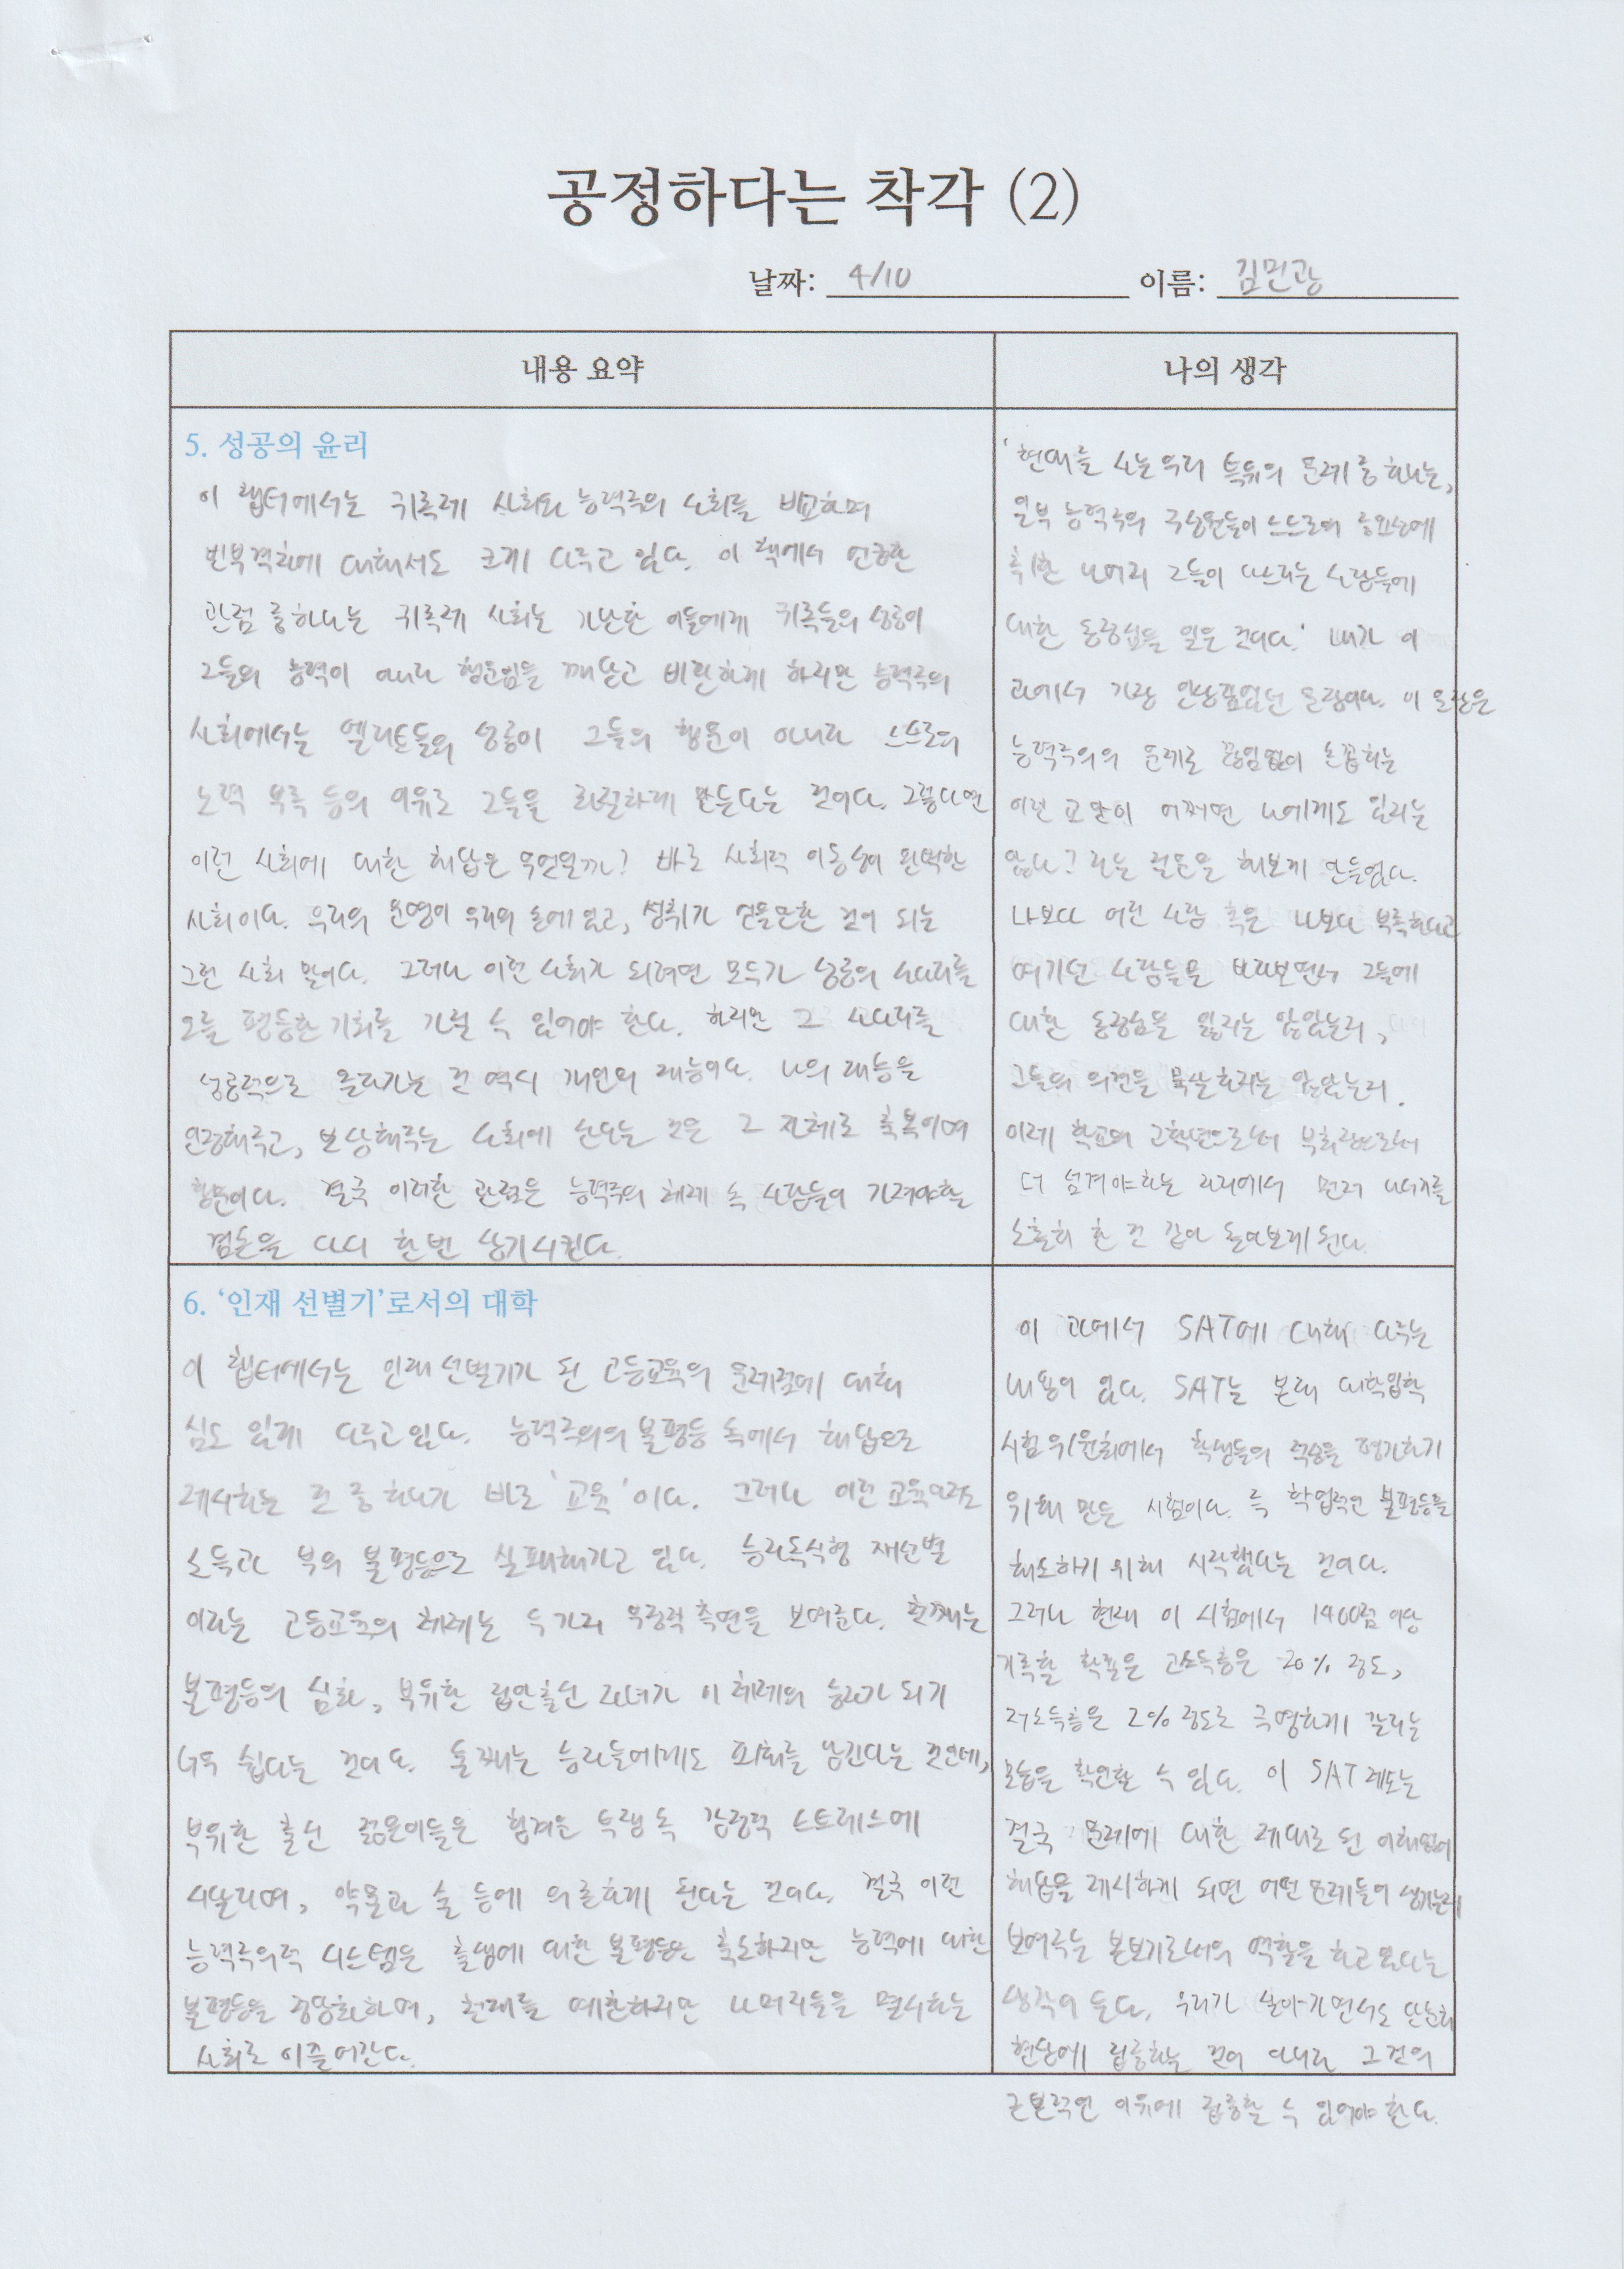 공정하다는 착각 (2)
날짜: 4/10 이름: 김민광
내용 요약
나의 생각
5. 성공의 윤리
이 챕터에서는 귀족제 사회와 능력주의 사회를 비교하며
빈부격차에 대해서도 크게 다루고 있다. 이 책에서 언급한
관점 중하나는 귀족제 사회는 가난한 이들에게 귀족들의 성공이
그들의 능력이 아니라 행운임을 깨닫고 비판하게 하지만 능력주의
사회에서는 엘리트들의 성공이 그들의 행운이 아니라 스스로의
노력 부족 등의 이유로 그들을 좌절하게 만든다는 것이다. 그렇다면
이런 사회에 대한 해답은 무엇일까? 바로 사회적 이동성이 완벽한
사회이다. 우리의 운명이 우리의 손에 있고, 성취가 얻을만한 것이 되는
그런 사회 말이다. 그러나 이런 사회가 되려면 모두가 성공의 사다리를
오를 평등한 기회를 가질 수 있어야 한다. 하지만 그 사다리를
성공적으로 올라가는 건 역시 개인의 재능이다. 나의 재능을
인정해주고, 보상해주는 사회에 산다는 것은 그 자체로 축복이며
행운이다. 결국 이러한 관점은 능력주의 체제 속 사람들이 가져야할
겸손을 다시 한번 상기시킨다.
'현대를 사는 우리 특유의 문제 중 하나는,
일부 능력주의 구성원들이 스스로의 중요성에
취한 나머지 그들이 다스리는 사람들에
대한 동정심을 잃은 것이다.' 내가 이
과에서 가장 인상깊었던 문장이다. 이 문장은
능력주의의 문제로 끊임없이 손꼽히는
이런 교만이 어쩌면 나에게도 있지는
않나? 라는 질문을 해보게 만들었다.
나보다 어린 사람 혹은 나보다 부족하다고
여기던 사람들을 바라보면서 그들에
대한 동정심을 잃지는 않았는지,
그들의 의견을 묵살하지는 않았는지.
이제 학교의 고학년으로서 부회장으로서
더 섬겨야하는 자리에서 먼저 나서지를
소홀히 한 것 같아 돌아보게 된다.
6. '인재 선별기'로서의 대학
이 챕터에서는 인재 선별기가 된 고등교육의 문제점에 대해
심도 있게 다루고 있다. 능력주의의 불평등 속에서 해답으로
제시하는 것 중 하나가 바로 '교육'이다. 그러나 이런 교육마저도
소득과 부의 불평등으로 실패해가고 있다. 승리독식형 재선별
이라는 고등교육의 체제는 두 가지 부정적 측면을 보여준다. 첫째는
불평등의 심화, 부유한 집안출신 자녀가 이 체제의 승자가 되기
너무 쉽다는 것이다. 둘째는 승리들에게도 피해를 남긴다는 것인데,
부유한 출신 젊은이들은 힘겨운 투쟁 속 감정적 스트레스에
시달리며, 약물과 술 등에 의존하게 된다는 것이다. 결국 이런
능력주의적 시스템은 출생에 대한 불평등은 축소하지만 능력에 대한
불평등을 정당화하며, 천재를 예찬하지만 나머지들을 멸시하는
사회로 이끌어간다.
이 과에서 SAT에 대해 다루는
내용이 있다. SAT는 본래 대학입학
시험 위원회에서 학생들의 적성을 평가하기
위해 만든 시험이다. 즉 학업적인 불평등을
해소하기 위해 시작했다는 것이다.
그러나 현재 이 시험에서 1400점 이상
기록할 확률은 고소득층은 20% 정도,
저소득층은 2% 정도로 극명하게 갈리는
모습을 확인할 수 있다. 이 SAT 제도는
결국 문제에 대한 제대로 된 이해없이
해답을 제시하게 되면 어떤 문제들이 생기는지
보여주는 본보기로서의 역할을 하고 있다는
생각이 든다. 우리가 살아가면서도 단순히
현상에 집중하는 것이 아니라 그것의
근본적인 이유에 집중할 수 있어야 한다.